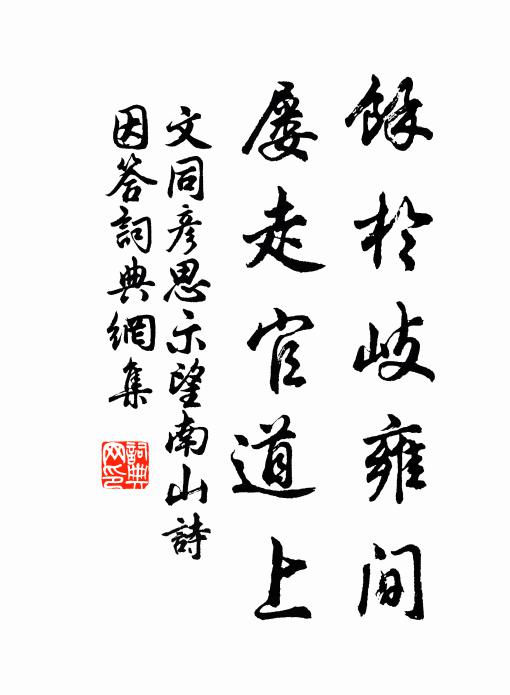 餘於岐雍間
屡走官道上
文同彦思示望南山詩
因答詞典網集
詞典網印